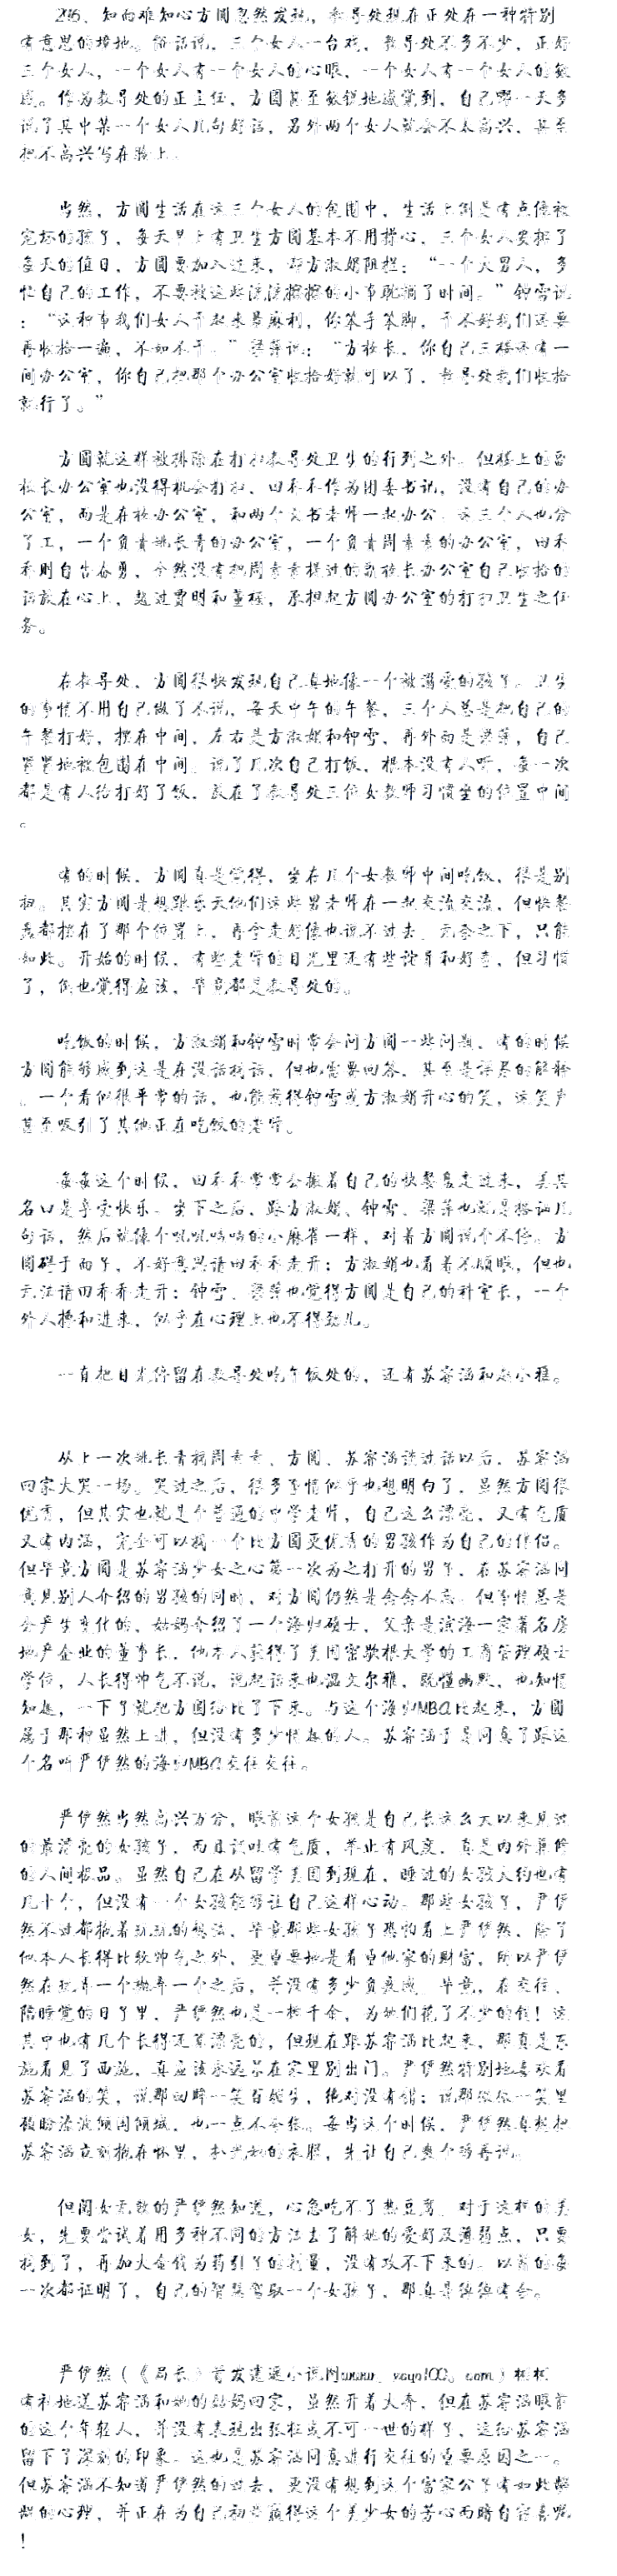 295、知面难知心方圆忽然发现，教导处现在正处在一种特别
有意思的境地。俗话说，三个女人一台戏，教导处不多不少，正好
三个女人，一个女人有一个女人的心眼，一个女人有一个女人的敏
感。作为教导处的正主任，方圆甚至敏锐地感觉到，自己哪一天多
说了其中某一个女人几句好话，另外两个女人就会不太高兴，甚至
把不高兴写在脸上。
当然，方圆生活在这三个女人的包围中，生活上倒是有点像被
宠坏的孩子，每天早上有卫生方圆基本不用操心，三个女人安排了
每天的值日，方圆要加入进来，却方淑娟阻拦：“一个大男人，多
忙自己的工作，不要被这些洗洗擦擦的小事耽搁了时间。”钟雪说
：“这种事我们女人干起来最麻利，你笨手笨脚，干不好我们还要
再收拾一遍，不如不干。”梁萍说：“方校长，你自己三楼还有一
间办公室，你自己把那个办公室收拾好就可以了，教导处我们收拾
就行了。”
方圆就这样被排除在打扫教导处卫生的行列之外。但楼上的副
校长办公室也没得机会打扫，田禾禾作为团委书记，没有自己的办
公室，而是在校办公室，和两个文书老师一起办公。这三个人也分
了工，一个负责姚长青的办公室，一个负责周素素的办公室，田禾
禾则自告奋勇，全然没有把周素素提过的副校长办公室自己收拾的
话放在心上，越过贾明和董极，承担起方圆办公室的打扫卫生之任
务。
在教导处，方圆很快发现自己真地像一个被溺爱的孩子。卫生
的事情不用自己做了不说，每天中午的午餐，三个人总是把自己的
午餐打好，摆在中间，左右是方淑娟和钟雪，再外面是梁萍，自己
紧紧地被包围在中间。说了几次自己打饭，根本没有人听，每一次
都是有人给打好了饭，放在了教导处三位女教师习惯坐的位置中间
。
有的时候，方圆真是觉得，坐在几个女教师中间吃饭，很是别
扭。其实方圆是想跟乐天他们这些男老师在一起交流交流，但快餐
盘都摆在了那个位置上，再拿走好像也说不过去，无奈之下，只能
如此。开始的时候，有些老师的目光里还有些诧异和好奇，但习惯
了，倒也觉得应该，毕竟都是教导处的。
吃饭的时候，方淑娟和钟雪时常会问方圆一些问题，有的时候
方圆能够感到这是在没话找话，但也需要回答，甚至是详尽的解释
。一个看似很平常的话，也能惹得钟雪或方淑娟开心的笑，这笑声
甚至吸引了其他正在吃饭的老师。
每每这个时候，田禾禾常常会搬着自己的快餐盘走过来，美其
名曰是享受快乐。坐下之后，跟方淑娟、钟雪、梁萍也就是搭讪几
句话，然后就像个叽叽喳喳的小麻雀一样，对着方圆说个不停。方
圆碍于面子，不好意思请田禾禾走开；方淑娟也看着不顺眼，但也
无法请田禾禾走开；钟雪、梁萍也觉得方圆是自己的科室长，一个
外人掺和进来，似乎在心理上也不得劲儿。
一直把目光停留在教导处吃午饭处的，还有苏容涵和赵小雅。
从上一次姚长青找周素素、方圆、苏容涵谈过话以后，苏容涵
回家大哭一场。哭过之后，很多事情似乎也想明白了，虽然方圆很
优秀，但其实也就是个普通的中学老师，自己这么漂亮，又有气质
又有内涵，完全可以找一个比方圆更优秀的男孩作为自己的伴侣。
但毕竟方圆是苏容涵少女之心第一次为之打开的男子，在苏容涵同
意见别人介绍的男孩的同时，对方圆仍然是念念不忘。但事情总是
会产生变化的，姑妈介绍了一个海归硕士，父亲是滨海一家著名房
地产企业的董事长，他本人获得了美国密歇根大学的工商管理硕士
学位，人长得帅气不说，说起话来也温文尔雅，既懂幽默，也知情
知趣，一下子就把方圆给比了下来。与这个海归MBA比起来，方圆
属于那种虽然上进，但没有多少情趣的人。苏容涵于是同意了跟这
个名叫严伊然的海归MBA交往交往。
严伊然当然高兴万分，眼前这个女孩是自己长这么大以来见过
的最漂亮的女孩子，而且谈吐有气质，举止有风度，真是内外兼修
的人间极品。虽然自己在从留学美国到现在，睡过的女孩大约也有
几十个，但没有一个女孩能够让自己这样心动。那些女孩子，严伊
然不过都抱着玩玩的想法，毕竟那些女孩子恐怕看上严伊然，除了
他本人长得比较帅气之外，更重要地是看重他家的财富，所以严伊
然在玩弄一个抛弃一个之后，并没有多少负疚感，毕竟，在交往、
陪睡觉的日子里，严伊然也是一掷千金，为她们花了不少的钱！这
其中也有几个长得还算漂亮的，但现在跟苏容涵比起来，那真是东
施看见了西施，真应该永远呆在家里别出门。严伊然特别地喜欢看
苏容涵的笑，说那回眸一笑百媚生，绝对没有错；说那微微一笑里
顾盼流波倾国倾城，也一点不夸张。每当这个时候，严伊然真想把
苏容涵立刻抱在怀里，扒光她的衣服，先让自己爽个够再说。
但阅女无数的严伊然知道，心急吃不了热豆腐，对于这样的美
女，先要尝试着用多种不同的方法去了解她的爱好及薄弱点，只要
找到了，再加大金钱为药引子的剂量，没有攻不下来的。以前的每
一次都证明了，自己的智慧驾驭一个女孩子，那真是绰绰有余。
严伊然（《局长》首发逍遥小说网www．xoyo100。com）彬彬
有礼地送苏容涵和她的姑妈回家，虽然开着大奔，但在苏容涵眼前
的这个年轻人，并没有表现出张狂或不可一世的样子，这给苏容涵
留下了深刻的印象。这也是苏容涵同意进行交往的重要原因之一。
但苏容涵不知道严伊然的过去，更没有想到这个富家公子有如此龌
龊的心理，并正在为自己初步赢得这个美少女的芳心而暗自窃喜呢
！